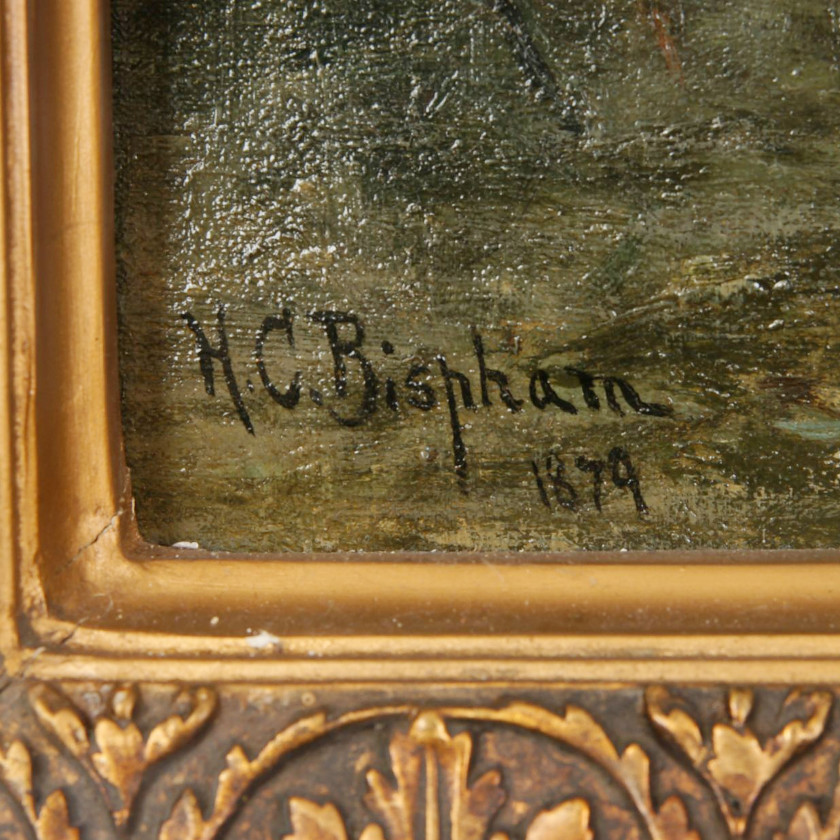 H.C. Bispham
1879